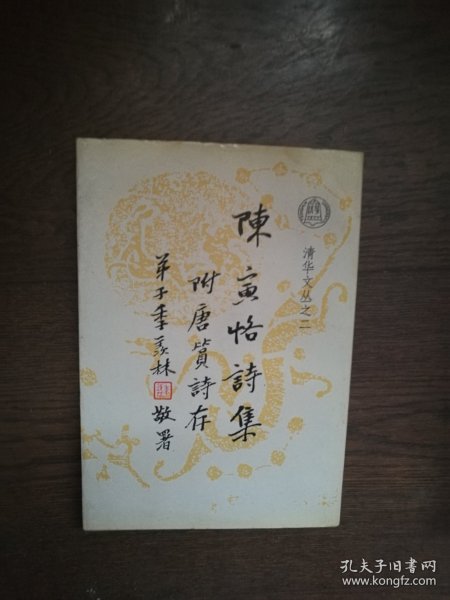 清华文丛之二
陳寅恪詩集
附唐篔詩存
弟子季羨林
敬署
孔夫子旧书网
www.kongfz.com